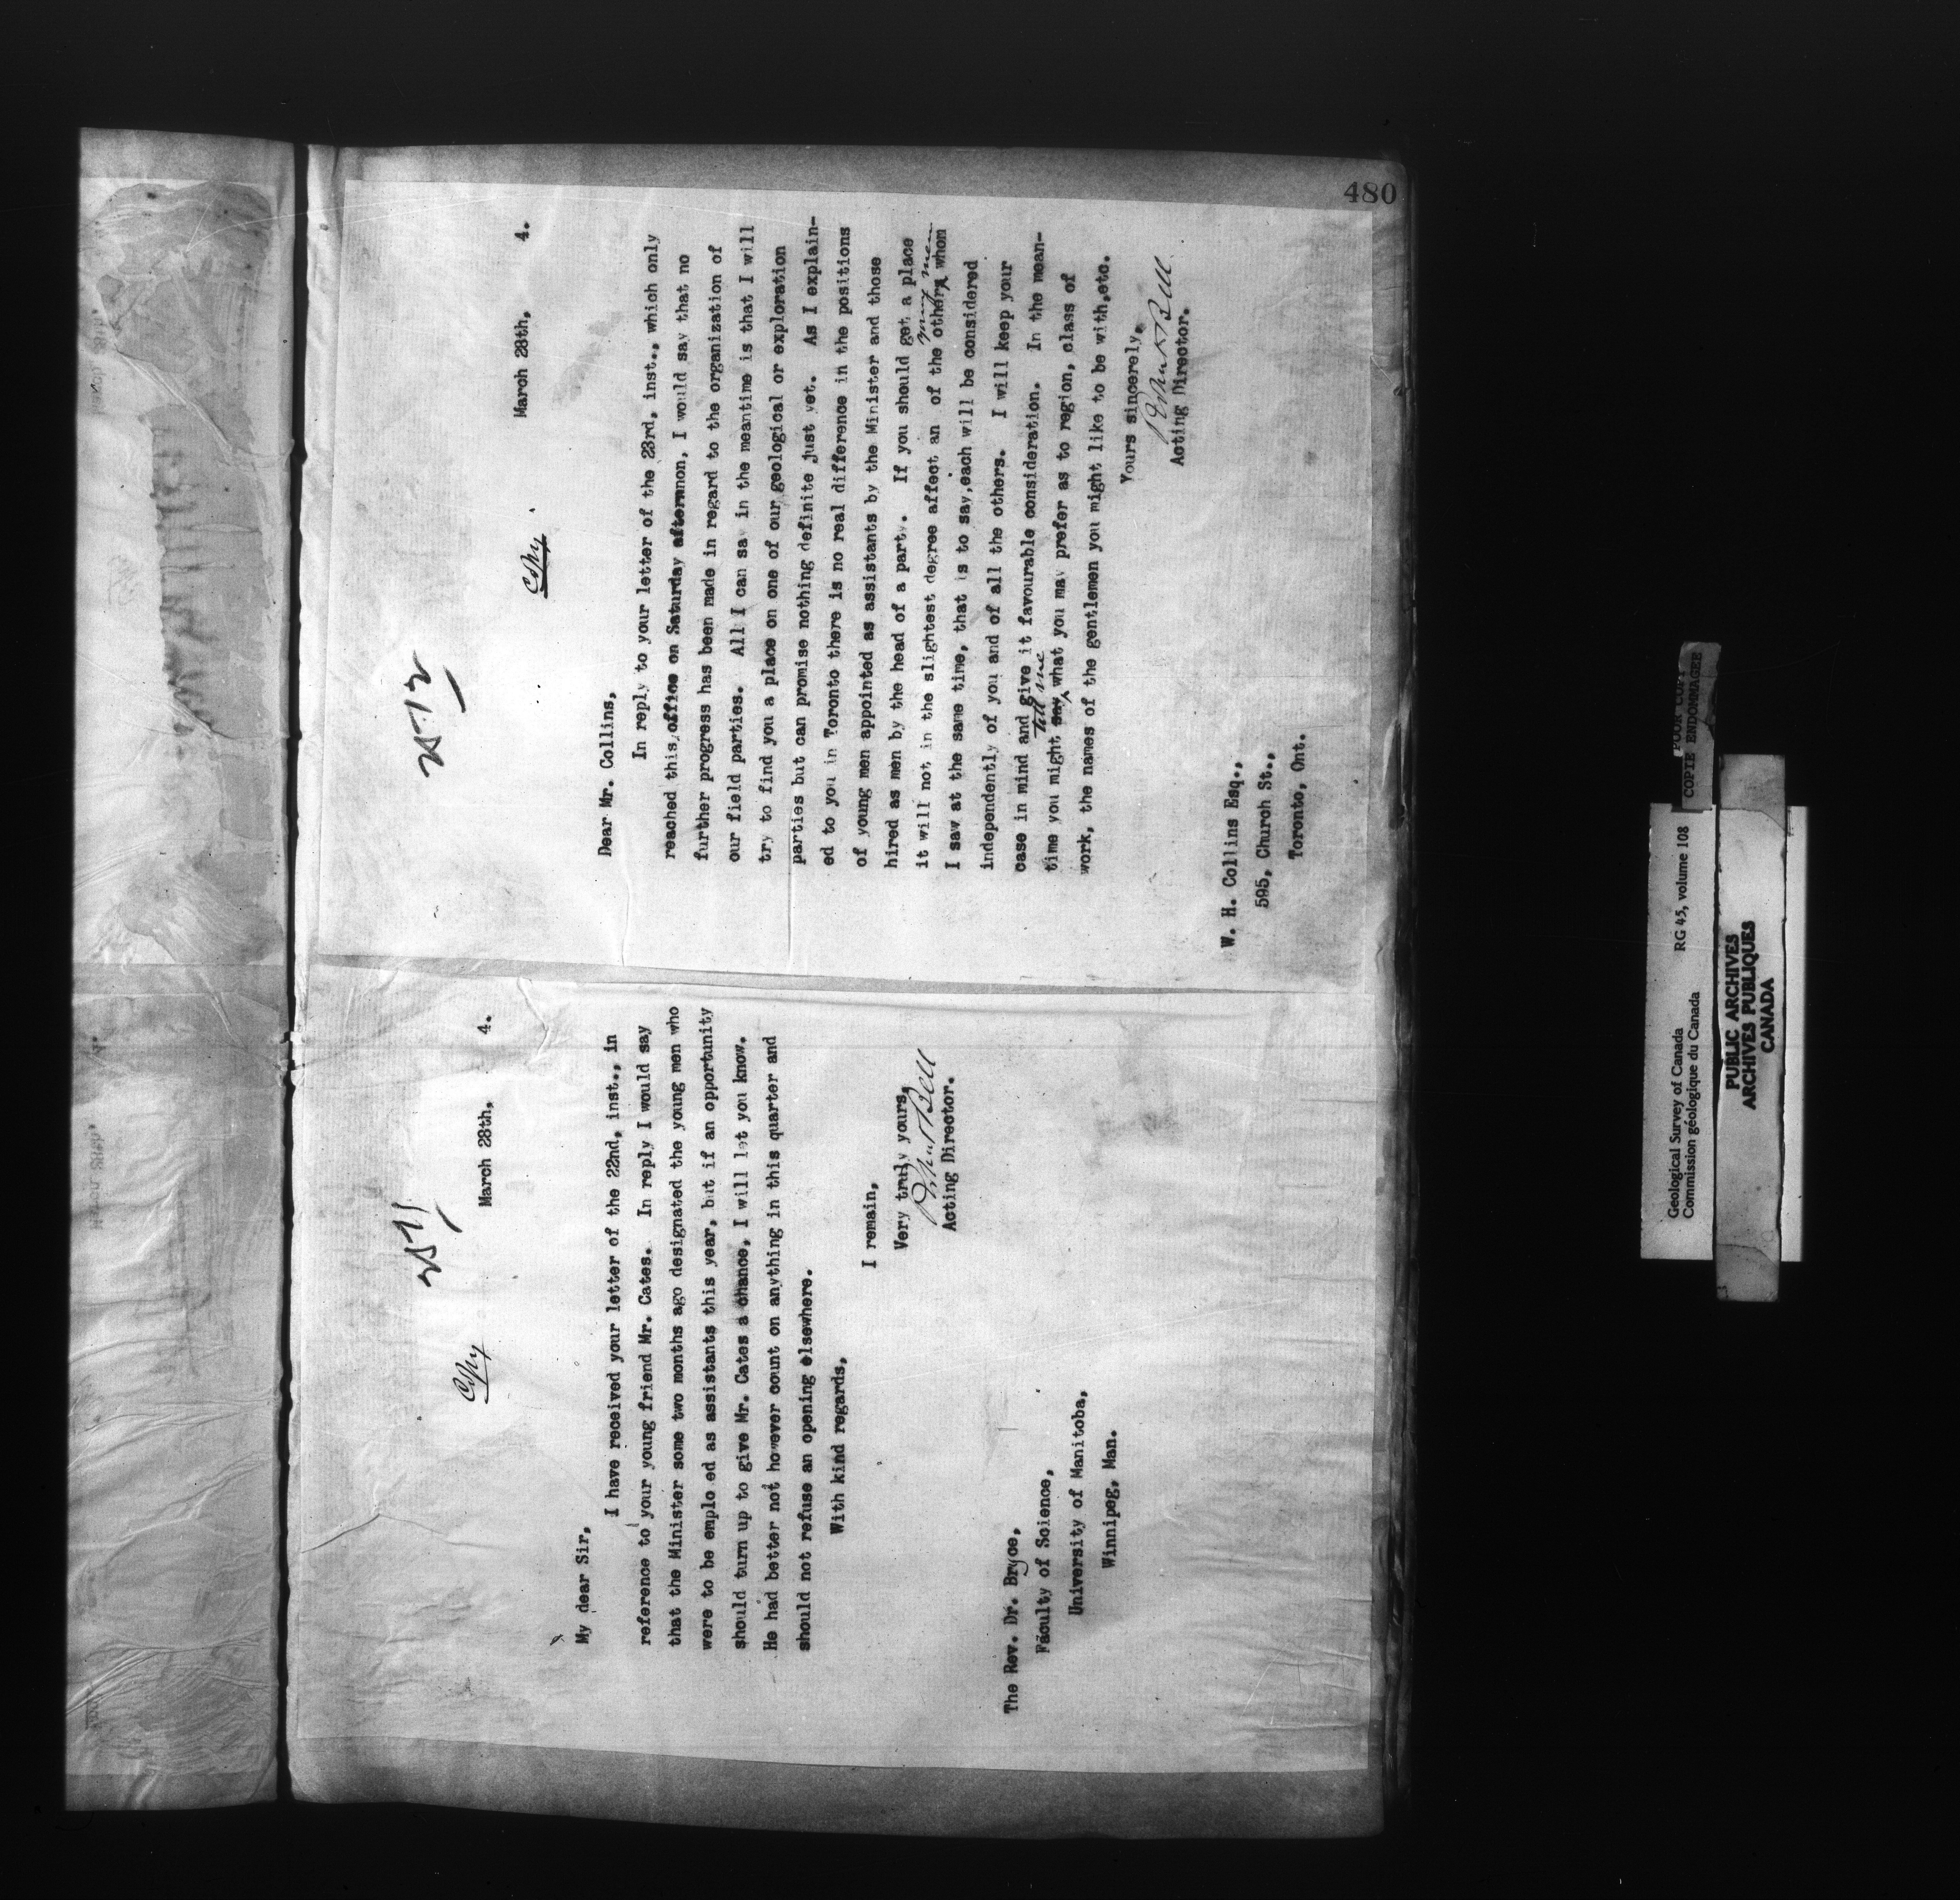 480
Copy
March 28th, 4.
My dear Sir,
I have received your letter of the 22nd, inst., in
reference to your young friend Mr. Cates. In reply I would say
that the Minister some two months ago designated the young men who
were to be emplo ed as assistants this year, but if an opportunity
should turn up to give Mr. Cates a chance, I will let you know.
He had better not however count on anything in this quarter and
should not refuse an opening elsewhere.
With kind regards,
I remain,
Very truly yours,
Robert Bell
Acting Director.
The Rev. Dr. Bryce,
Faculty of Science,
University of Manitoba,
Winnipeg, Man.
Copy
March 28th, 4.
Dear Mr. Collins,
In reply to your letter of the 23rd, inst., which only
reached this office on Saturday afternnon, I would say that no
further progress has been made in regard to the organization of
our field parties. All I can sa in the meantime is that I will
try to find you a place on one of our geological or exploration
parties but can promise nothing definite just yet. As I explain-
ed to you in Toronto there is no real difference in the positions
of young men appointed as assistants by the Minister and those
hired as men by the head of a party. If you should get a place
young men
it will not in the slightest degree affect an of the others whom
I saw at the same time, that is to say,each will be considered
independently of you and of all the others. I will keep your
case in mind and give it favourable consideration. In the mean-
tell me
time you might say what you may prefer as to region, class of
work, the names of the gentlemen you might like to be with,etc.
Yours sincerely,
Robert Bell
Acting Director.
W. H. Collins Esq.,
595, Church St.,
Toronto, Ont.
Geological Survey of Canada
Commission géologique du Canada
RG 45, volume 108
POOR COPY
COPIE ENDOMAGEE
PUBLIC ARCHIVES
ARCHIVES PUBLIQUES
CANADA